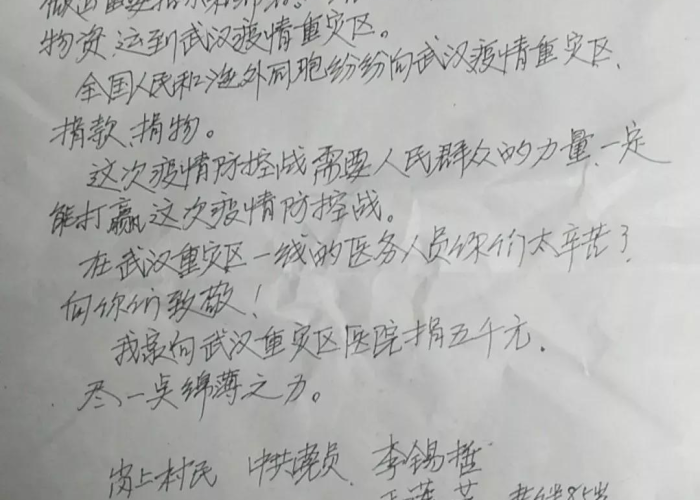 物资,运到武汉疫情重灾区。
全国人民和海外同胞纷纷向武汉疫情重灾区,
捐款、捐物。
这次疫情防控战需要人民群众的力量,一定
能打赢这次疫情防控战。
在武汉重灾区一线的医务人员你们太辛苦了
向你们致敬!
我家向武汉重灾区医院捐五千元.
尽一点绵薄之力。
岗上村民 中共党员 李锡哲